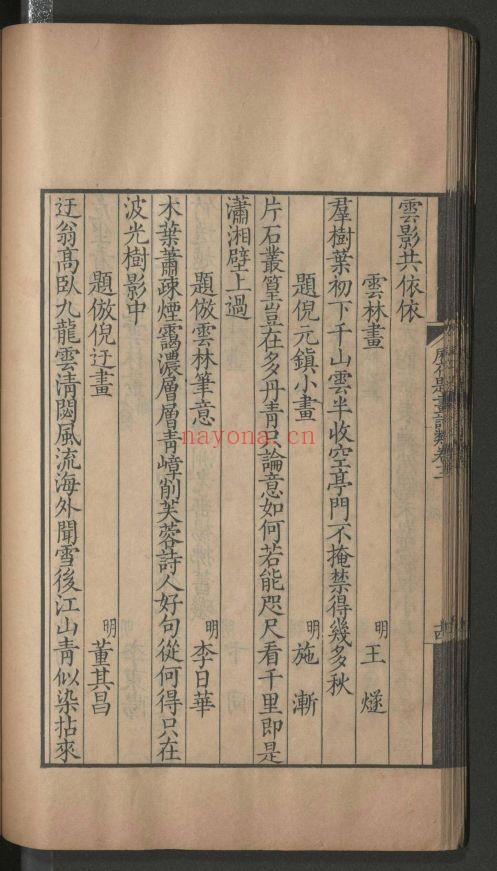 雲影共依依
雲林畫
明 王燧
羣樹葉初下千山雲半收空亭門不掩禁得幾多秋
題倪元鎮小畫
明 施漸
片石叢篁豈在多丹青只論意如何若能咫尺看千里即是
瀟湘壁上過
題倣雲林筆意
明 李日華
木葉蕭疎煙靄濃層層青嶂削芙蓉詩人好句從何得只在
波光樹影中
題倣倪迂畫
明 董其昌
迂翁高臥九龍雲清閟風流海外聞雪後江山青似染拈來
nayona.cn